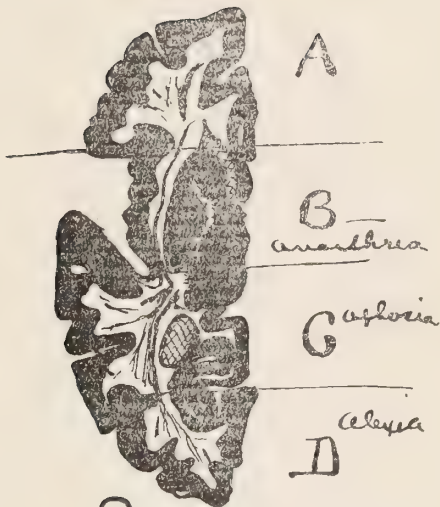 A
B
anarthria
C aphasia
alexia
D